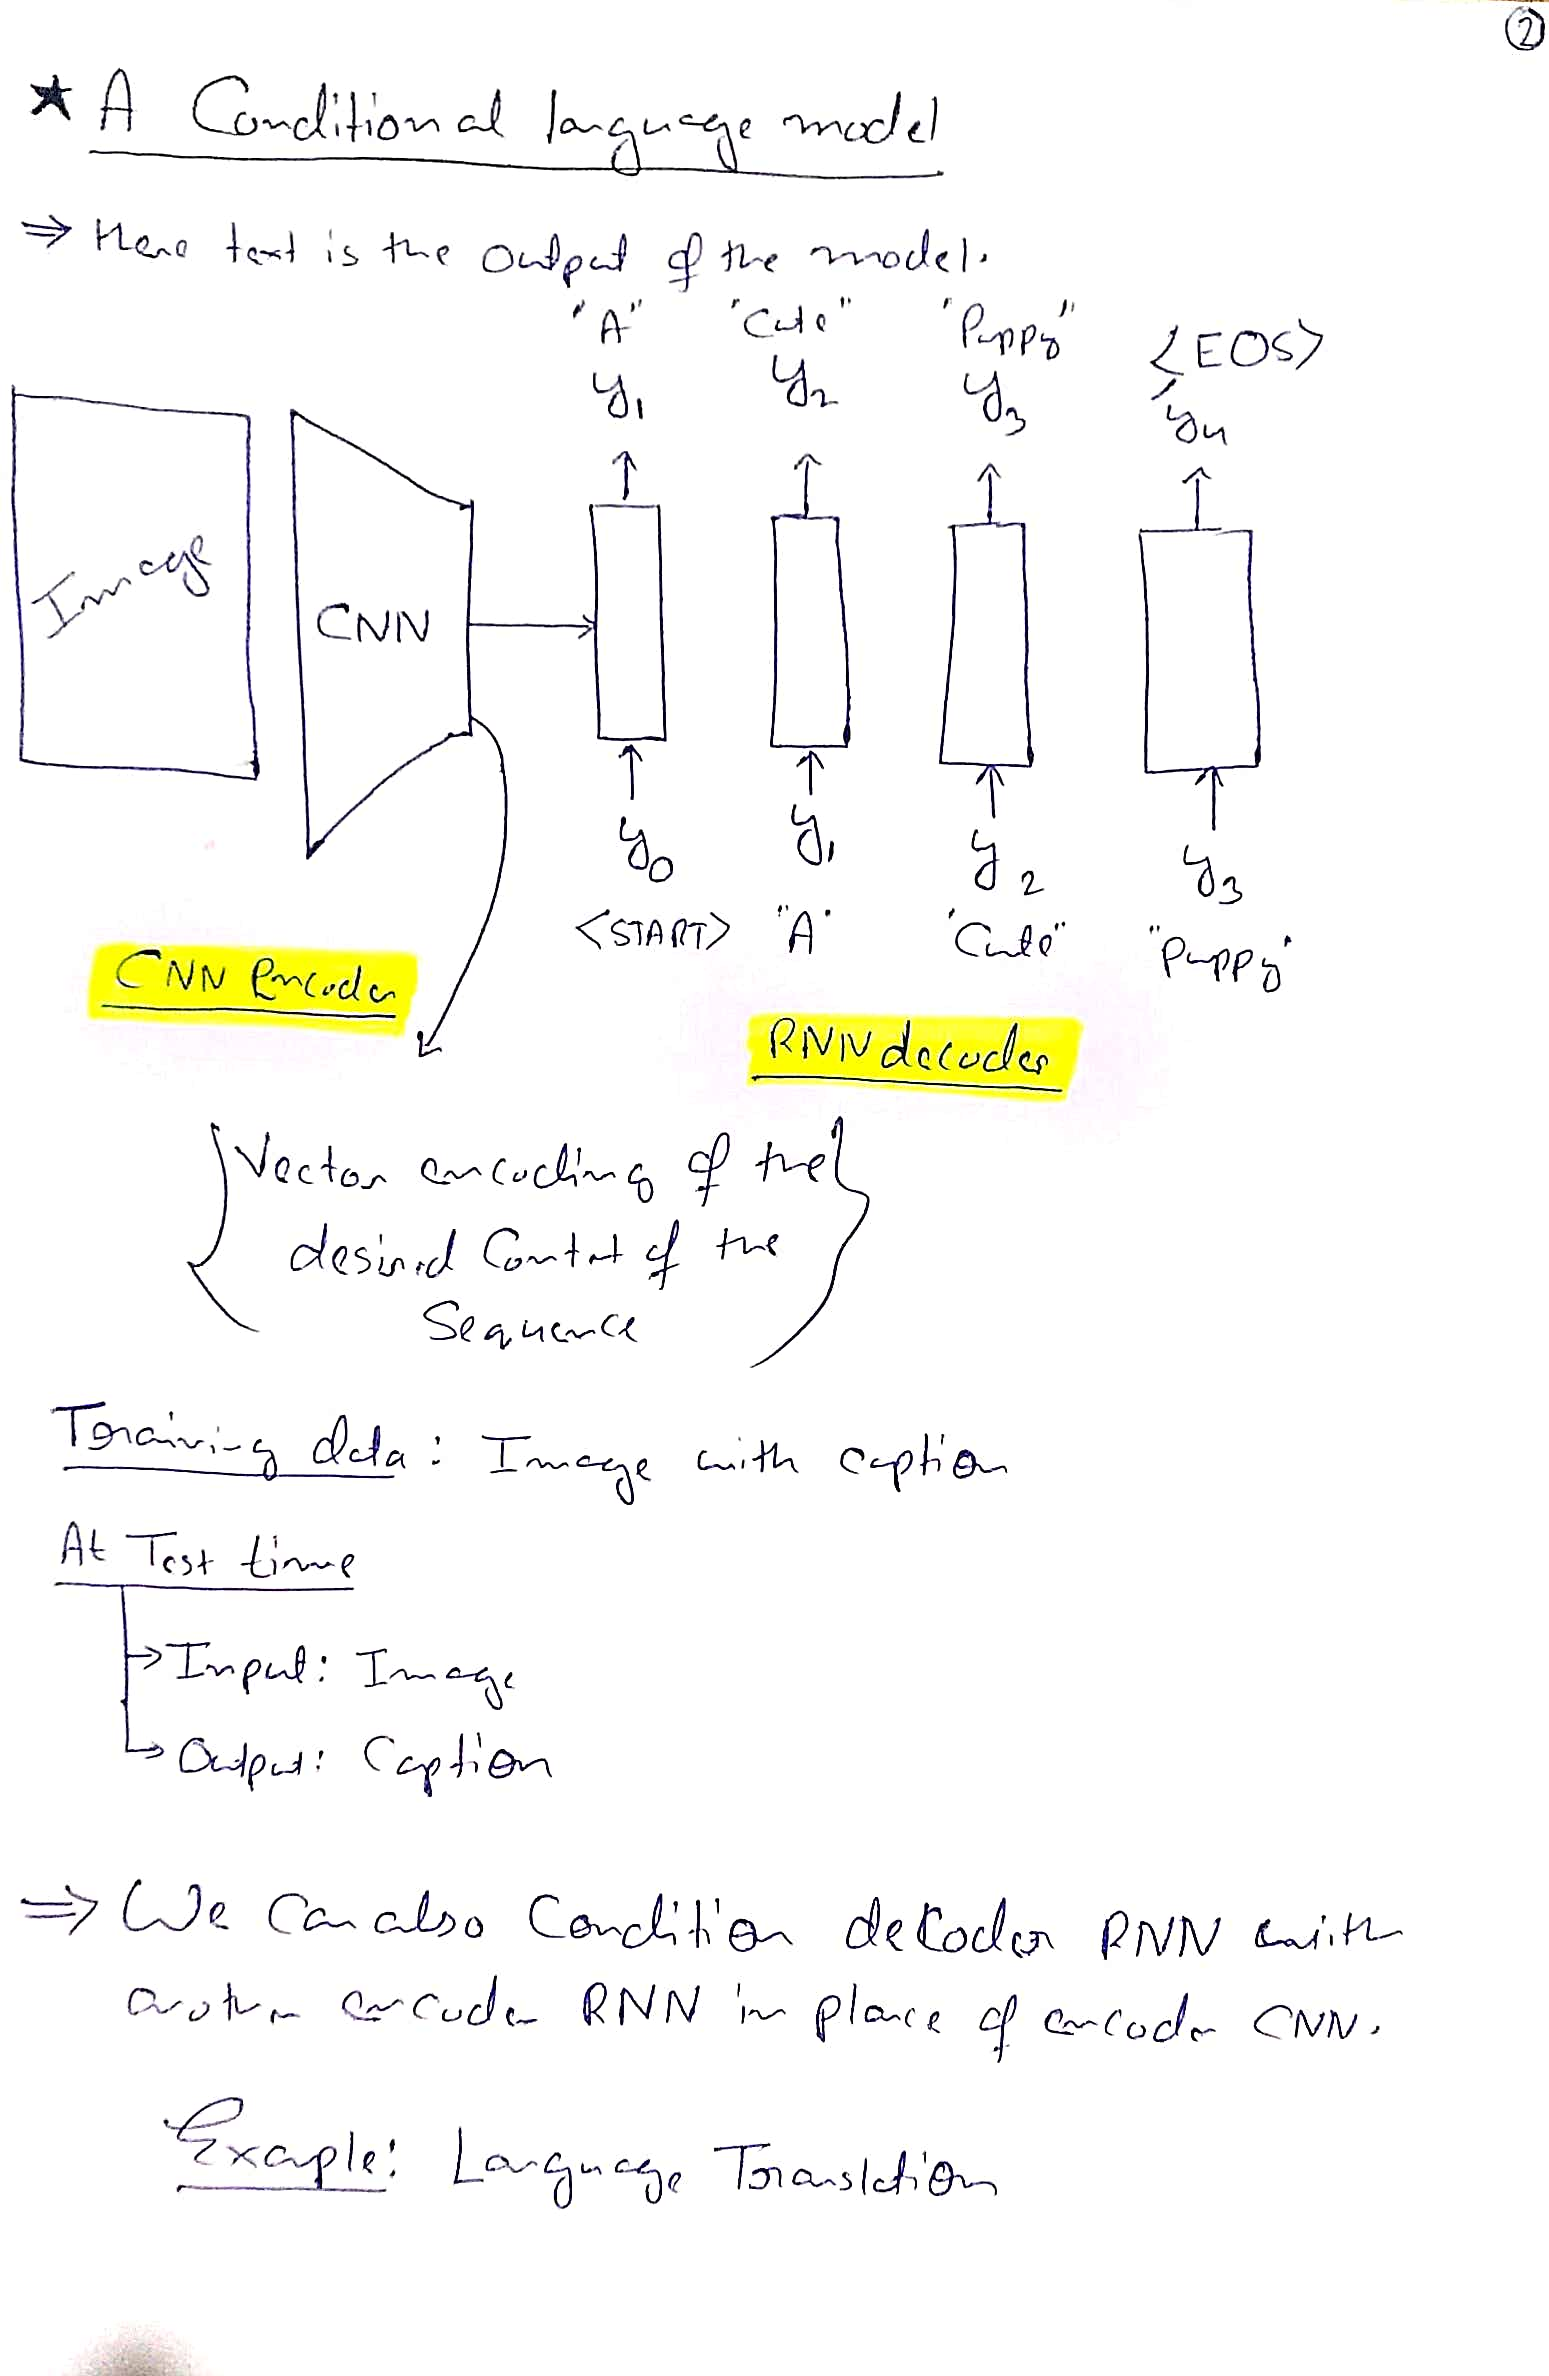 ②
★ A Conditional language model
⇒ Here text is the output of the model.
"A" "Cute" "Puppy" <EOS>
y₁ y₂ y₃ y₄
Image
CNN
y₀ y₁ y₂ y₃
<START> "A" "Cute" "Puppy"
CNN Encoder
RNN decoder
Vector encoding of the
desired Content of the
Sequence
Training data: Image with caption
At Test time
→ Input: Image
→ Output: Caption
⇒ We can also Condition decoder RNN with
another encoder RNN in place of encoder CNN.
Exaple: Language Translation